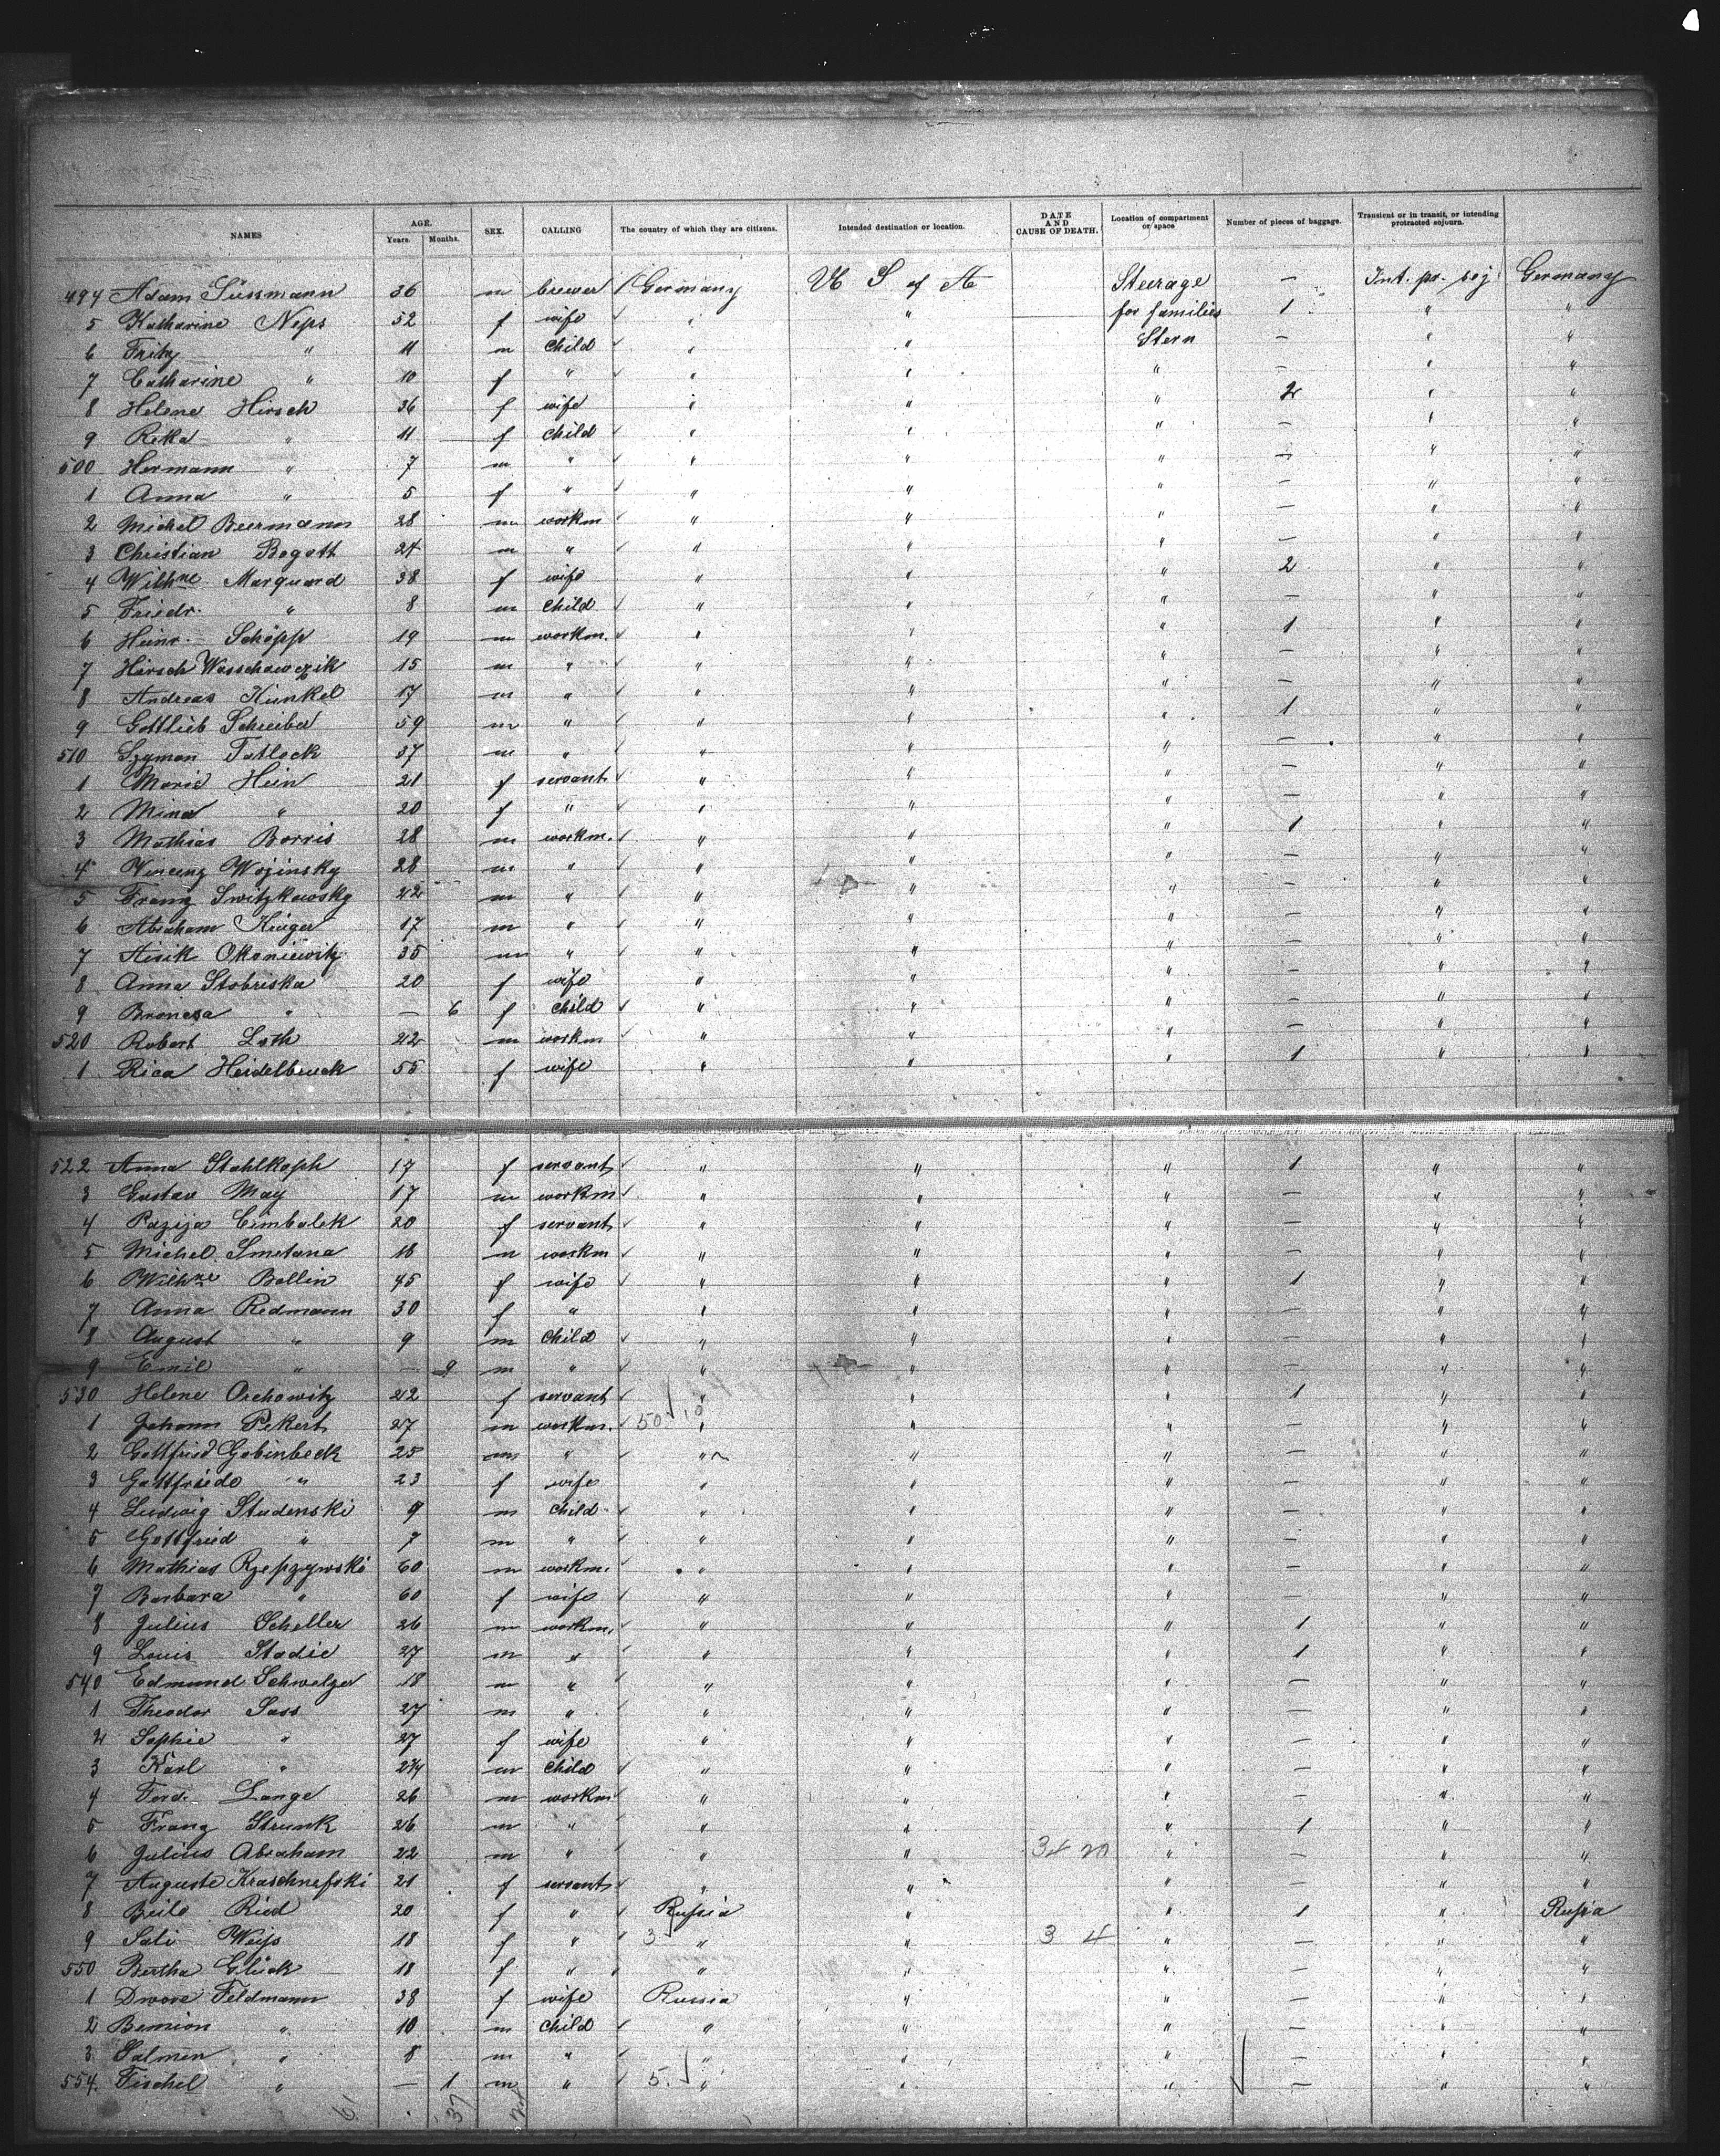 NAMES AGE. Years. Months. SEX. CALLING The country of which they are citizens. Intended destination or location. DATE AND CAUSE OF DEATH. Location of compartment or space Number of pieces of baggage. Transient or in transit, or intending protracted sojourn.
494 Adam Süssmann 36 m brewer Germany U S of A Steerage — Int. pr. soj Germany
5 Katharine Neps 52 f wife " " for families 1 " "
6 Fritz " 11 m child " " Stern — " "
7 Catharine " 10 f " " " " — " "
8 Helene Hirsch 36 f wife " " " 2 " "
9 Reka " 11 f child " " " — " "
500 Hermann " 7 m " " " " — " "
1 Anna " 5 f " " " " — " "
2 Michel Beermann 28 m workm " " " — " "
3 Christian Bogatt 24 m " " " " — " "
4 Wilhne Marquard 38 f wife " " " 2 " "
5 Friedr. " 8 m child " " " — " "
6 Heinr. Schöpp 19 m workm. " " " 1 " "
7 Hirsch Wasschawczik 15 m " " " " — " "
8 Andreas Kunkel 17 m " " " " — " "
9 Gottlieb Schreiber 59 m " " " " 1 " "
510 Szyman Tatlock 37 m " " " " — " "
1 Marie Hein 21 f servant " " " — " "
2 Mina " 20 f " " " " — " "
3 Mathias Borris 28 m workm. " " " 1 " "
4 Vincenz Wojinsky 28 m " " " " — " "
5 Franz Switzkowsky 22 m " " " " — " "
6 Abraham Kinger 17 m " " " " — " "
7 Aisik Okoniewitz 35 m " " " " — " "
8 Anna Stobriska 20 f wife " " " — " "
9 " — 6 f child " " " — " "
520 Robert Loth 22 m workm " " " — " "
1 Rica Heidelbruck 55 f wife " " " 1 " "
522 Anna Stahlkoph 17 f servant " " " 1 " "
3 Gustav May 17 m workm " " " — " "
4 Pazija Cimbalek 20 f servant " " " — " "
5 Michel Smetana 18 m workm " " " — " "
6 Wilhne Bollin 45 f wife " " " 1 " "
7 Anna Redmann 30 f " " " " — " "
8 August " 9 m child " " " — " "
9 Emil " — 9 m " " " " — " "
530 Helene Orchowitz 22 f servant " " " 1 " "
1 Johann Pekert 27 m workm. 50 " " " — " "
2 Gottfried Gobinbeck 25 m " " " " — " "
3 Gottfriede " 23 f wife " " " — " "
4 Ludwig Studenski 9 m child " " " — " "
5 Gottfried " 7 m " " " " — " "
6 Mathias Rzepzywski 60 m workm. " " " — " "
7 Barbara " 60 f wife " " " — " "
8 Julius Scheller 26 m workm. " " " 1 " "
9 Louis Stadie 27 m " " " " 1 " "
540 Edmund Schwelzer 18 m " " " " — " "
1 Theodor Sass 27 m " " " " — " "
2 Sophie " 27 f wife " " " — " "
3 Karl " m child " " " — " "
4 Ferd. Lange 26 m workm " " " — " "
5 Franz Strunk 26 m " " " " 1 " "
6 Julius Abraham 22 m " " " 34 20 " — " "
7 Auguste Kraschnefski 21 f servant " " " — " "
8 Beile Ried 20 f " Russia " " 1 " Russia
9 Sali Weiss 18 f " 3 " " 3 4 " — " "
550 Bertha Glück 18 f " " " " — " "
1 Dwore Feldmann 38 f wife Russia " " — " "
2 Bemion " 10 m child " " " — " "
3 Salmen " 8 m " " " " — " "
554. Fischel " — 1 m " 5. " " " — " "
61 37